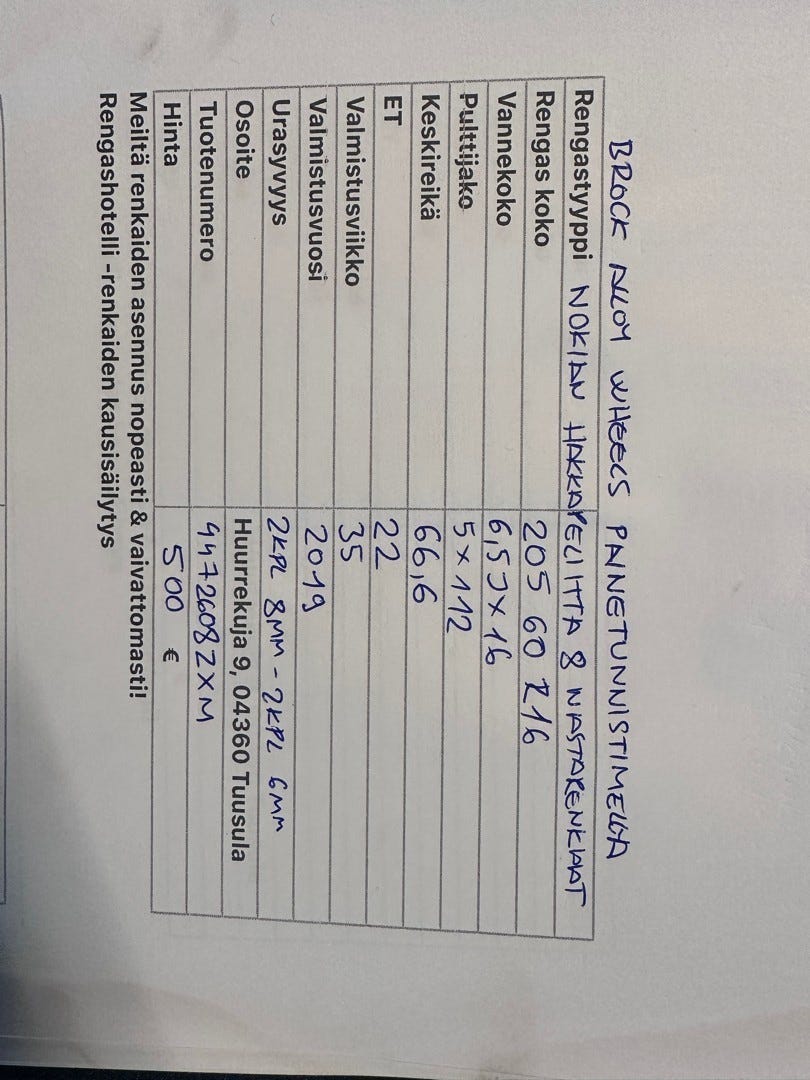 BROCK ALLOY WHEELS PAINETUNNISTIMELLA
Rengastyyppi NOKIAN HAKKAPELIITTA 8 NASTARENKAAT
Rengas koko 205 60 R16
Vannekoko 6,5J x 16
Pulttijako 5 x 112
Keskireikä 66,6
ET 22
Valmistusviikko 35
Valmistusvuosi 2019
Urasyvyys 2KPL 8MM - 2KPL 6MM
Osoite Huurrekuja 9, 04360 Tuusula
Tuotenumero 4472608ZXM
Hinta 500 €
Meiltä renkaiden asennus nopeasti & vaivattomasti!
Rengashotelli -renkaiden kausisäilytys